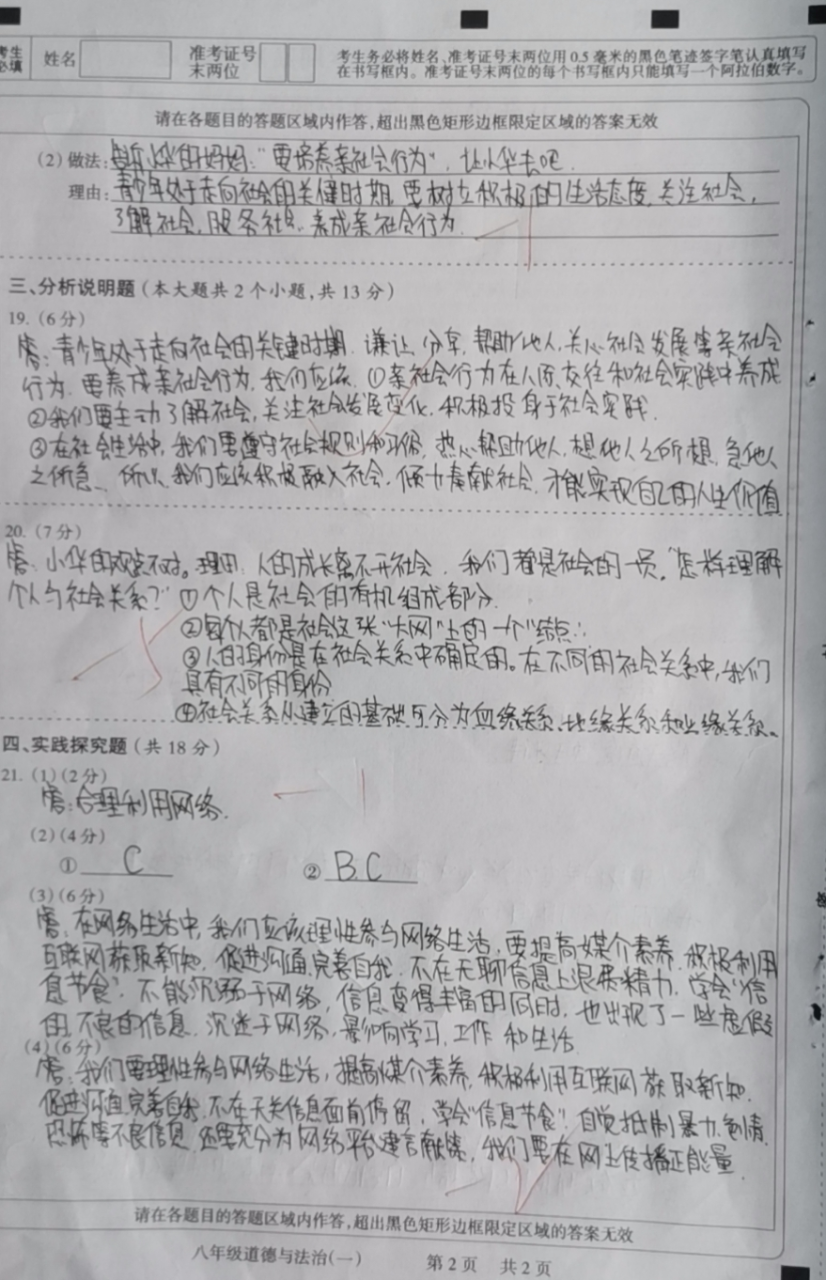 考生
必填
姓名
准考证号
末两位
考生务必将姓名、准考证号末两位用0.5毫米的黑色笔迹签字笔认真填写
在书写框内。准考证号末两位的每个书写框内只能填写一个阿拉伯数字。
请在各题目的答题区域内作答,超出黑色矩形边框限定区域的答案无效
(2)做法:告诉小华的妈妈:“要培养亲社会行为”,让小华去吧.
理由:青少年处于走向社会的关键时期.要树立积极的生活态度,关注社会,
了解社会,服务社会.养成亲社会行为.
三、分析说明题(本大题共2个小题,共13分)
19.(6分)
答:青少年处于走向社会的关键时期.谦让、分享,帮助他人,关心社会发展等亲社会
行为.要养成亲社会行为,我们应该.①亲社会行为在人际交往和社会实践中养成
②我们要主动了解社会,关注社会发展变化,积极投身于社会实践.
③在社会生活中,我们要遵守社会规则和习俗,热心帮助他人,想他人之所想,急他人
之所急、所以,我们应该积极融入社会,倾力奉献社会,才能实现自己的人生价值
20.(7分)
答:小华的观点不对。理由:人的成长离不开社会.我们都是社会的一员。“怎样理解
个人与社会关系?”①个人是社会的有机组成部分.
②每个人都是社会这张“大网”上的一个“结点”.
③人的身份是在社会关系中确定的。在不同的社会关系中,我们
具有不同的身份
④社会关系从建立的基础可分为血缘关系、地缘关系和业缘关系。
四、实践探究题(共18分)
21.(1)(2分)
答:合理利用网络.
(2)(4分)
① C ② B.C
(3)(6分)
答,在网络生活中,我们应该理性参与网络生活,要提高媒介素养,积极利用
互联网获取新知.促进沟通,完善自我.不在无聊信息上浪费精力,学会“信
息节食”.不能沉溺于网络,信息变得丰富的同时,也出现了一些虚假
的.不良的信息.沉迷于网络,影响学习,工作和生活
(4)(6分)
答:我们要理性参与网络生活,提高媒介素养,积极利用互联网获取新知.
促进沟通,完善自我.不在无关信息面前停留,学会“信息节食”.自觉抵制暴力.色情.
恐怖等不良信息.还要充分为网络平台建言献策,我们要在网上传播正能量.
请在各题目的答题区域内作答,超出黑色矩形边框限定区域的答案无效
八年级道德与法治(一) 第2页 共2页